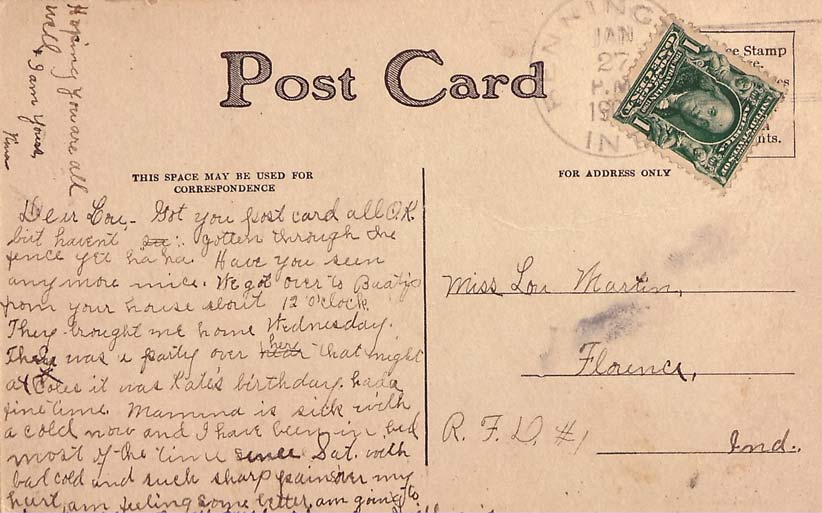 Hoping you are all
well & I am Yours,
Nina
Post Card
THIS SPACE MAY BE USED FOR
CORRESPONDENCE
FOR ADDRESS ONLY
BENNING
JAN
27
P.M
19
IN
ce Stamp
Dear Lou,- Got you post card all O.K.
but havent gotten through the
fence yet ha ha. Have you seen
anymore mice. We got over to Beaty's
from your house about 12 o'clock.
They brought me home Wednesday.
There was a party over here that night
at Coles it was Kate's birthday. had a
fine time. Mamma is sick with
a cold now and I have been in bed
most of the time since Sat. with
bad cold and such sharp pains over my
hurt, am feeling some better, am going to
Miss Lou Martin,
Florence,
R. F. D. #1
Ind.